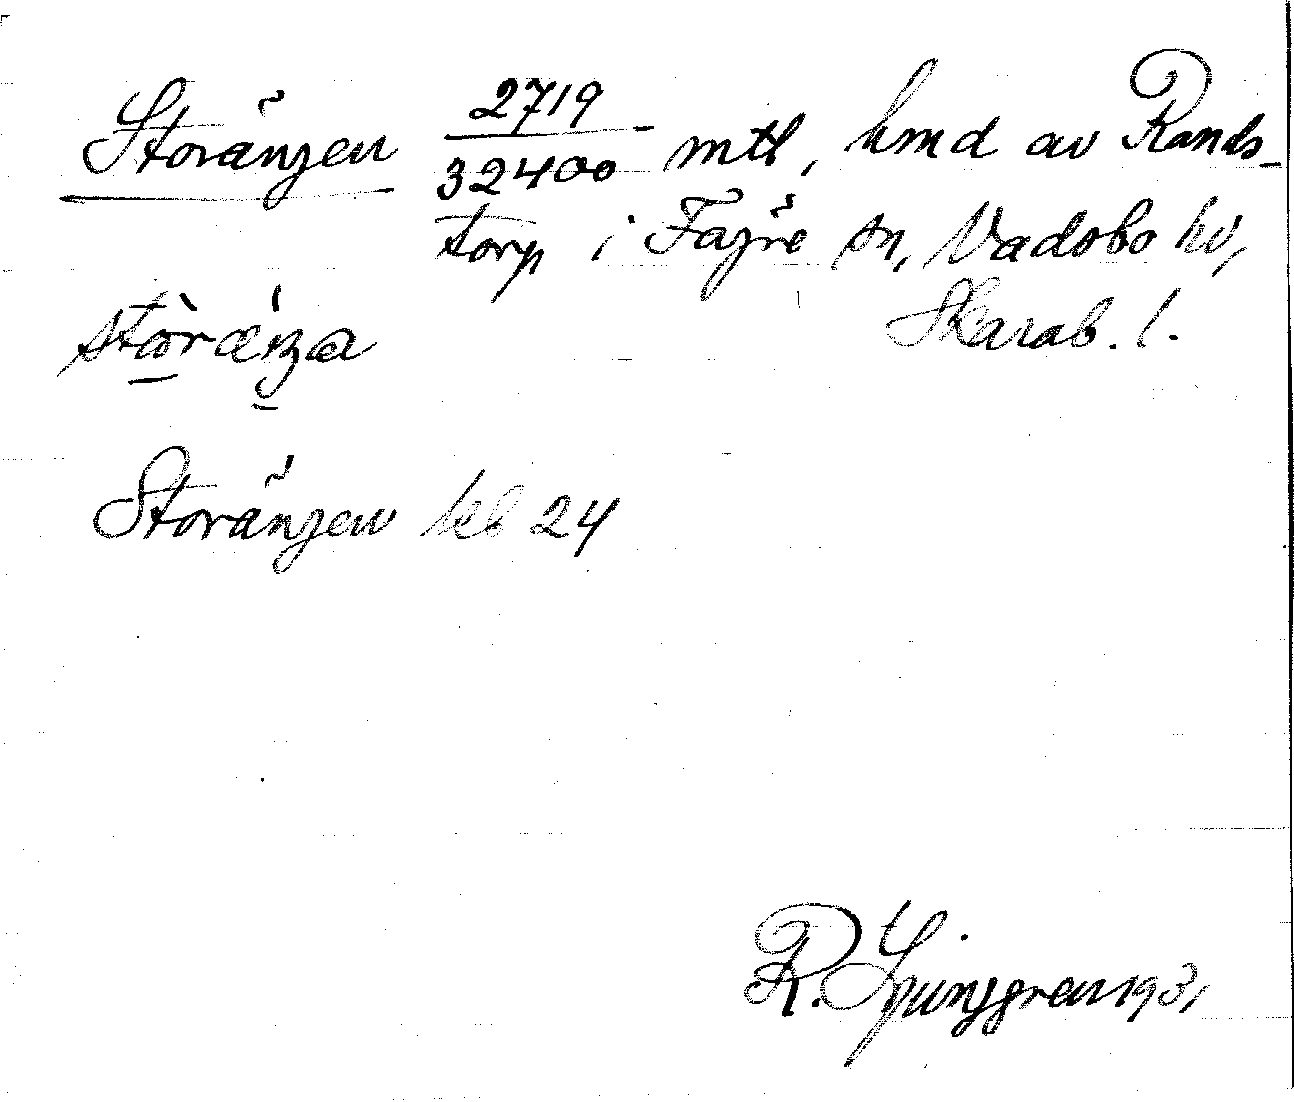 Storängen 2719/32400 mtl, hmd av Rands-
torp i Fägre sn, Vadsbo hd,
Skarab. l.
Storängen kb 24
R. Ljunggren 1931